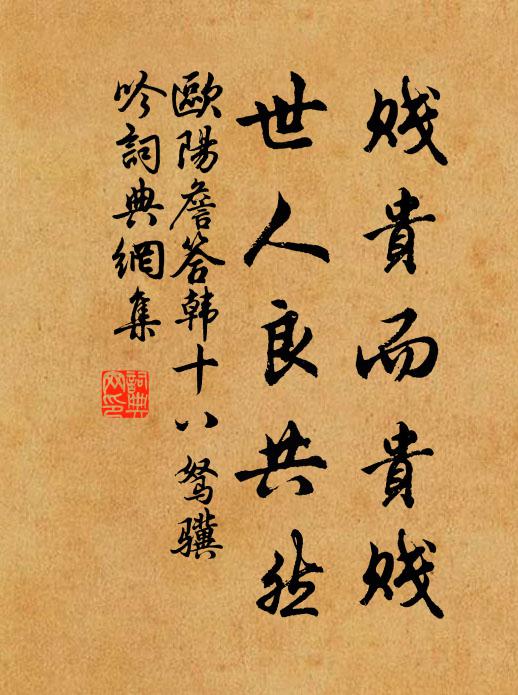 贱貴而貴贱
世人良共然
歐陽詹答韩十八驽骥
吟詞典網集
詞典
网印